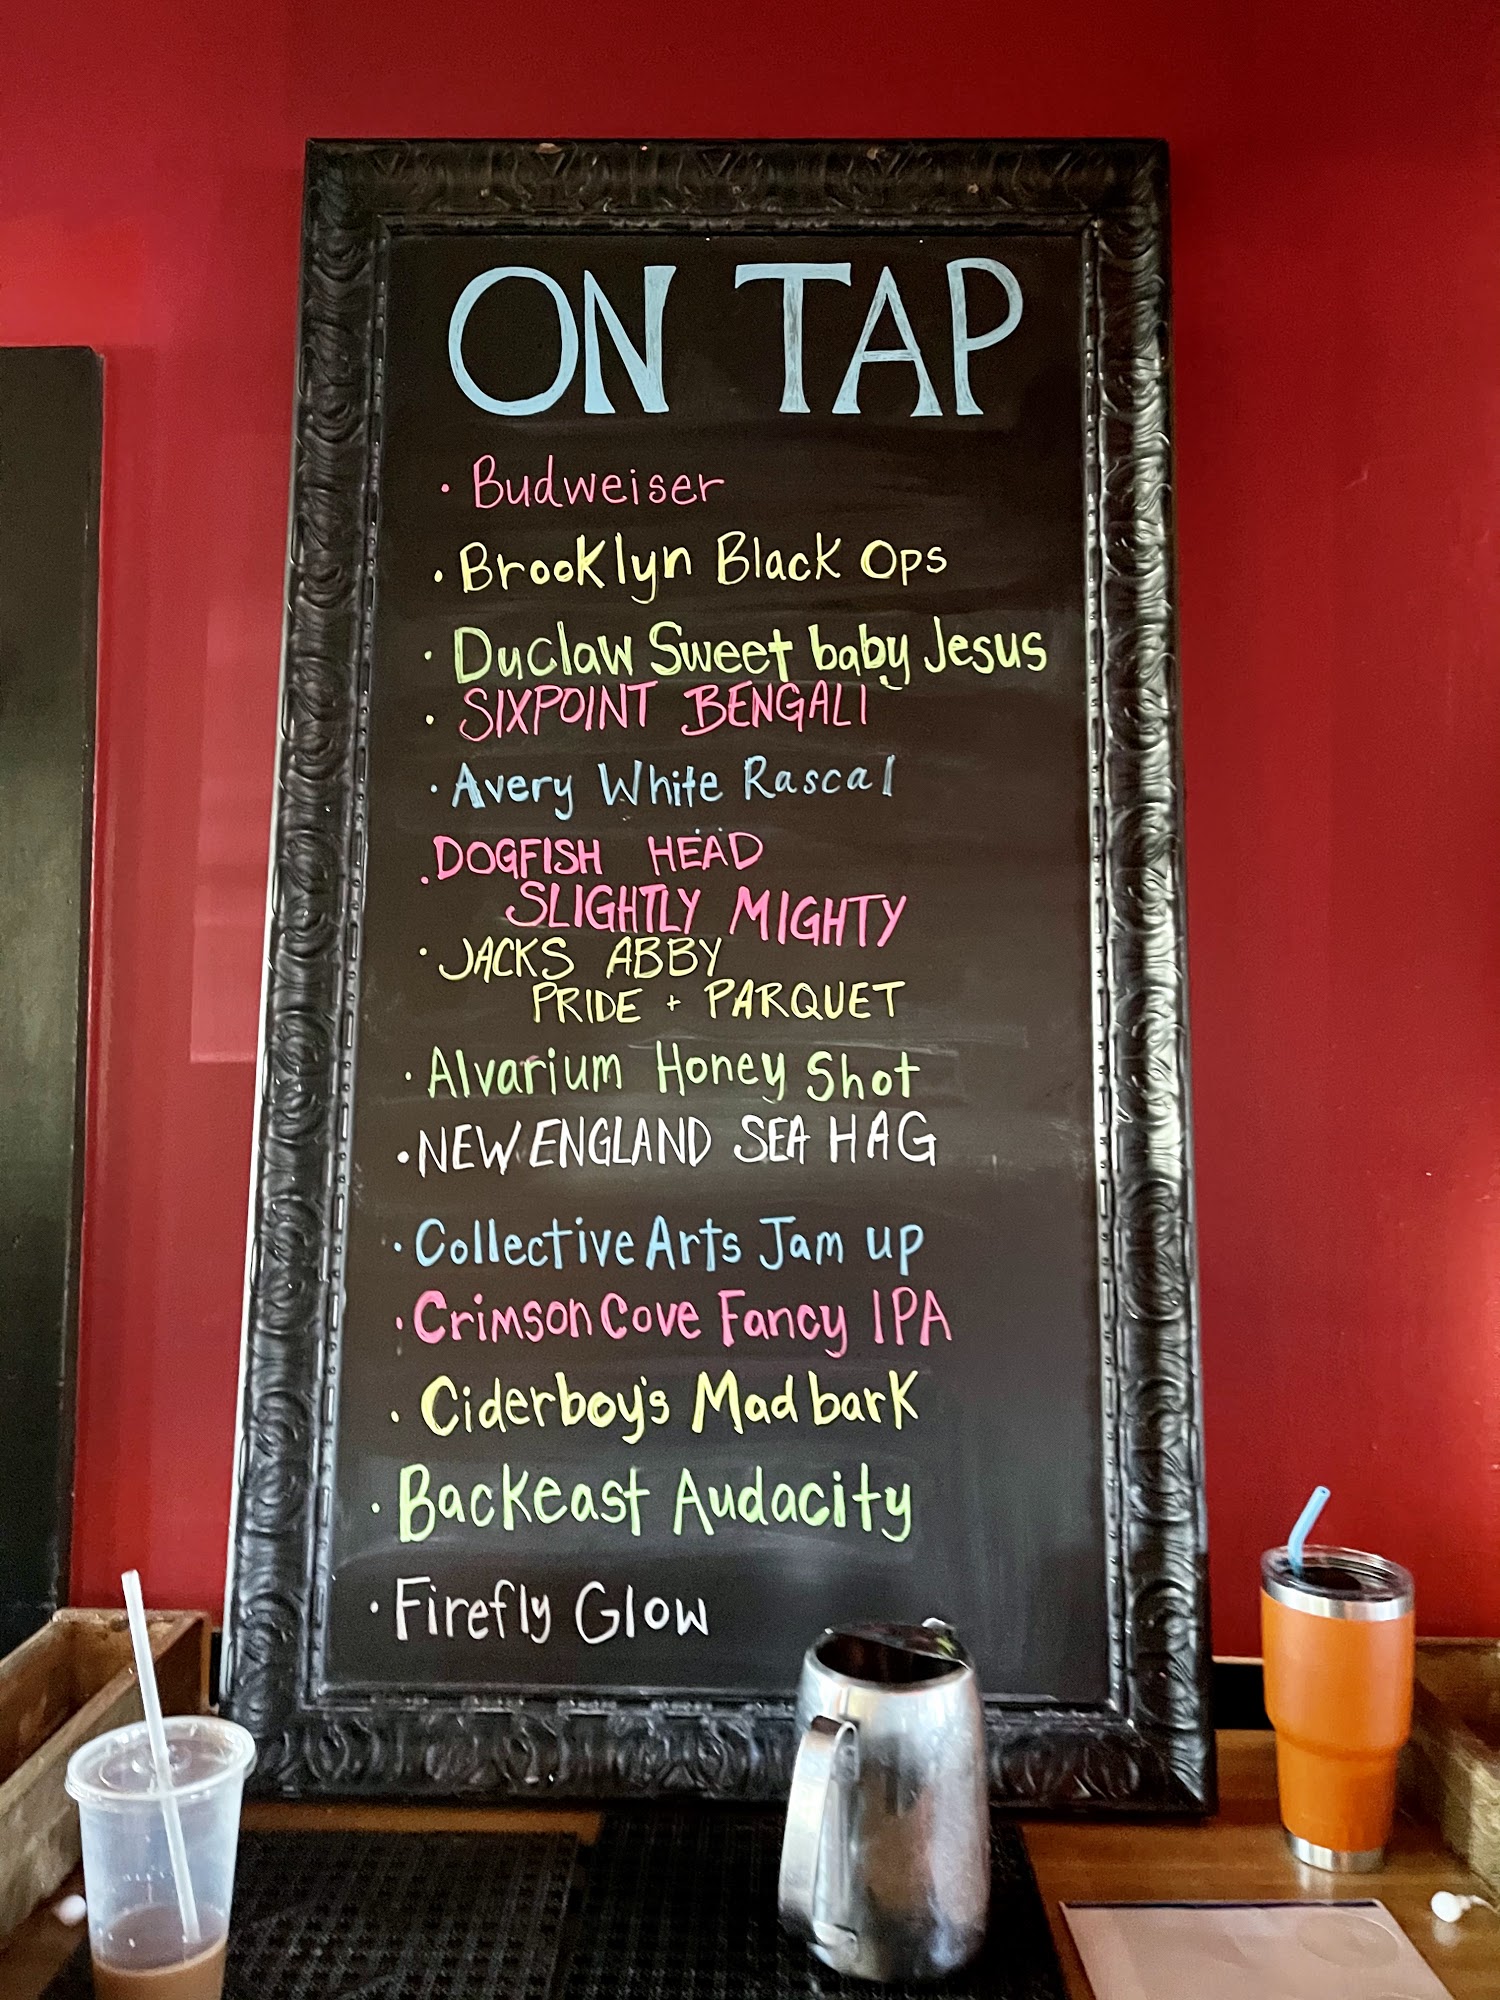 ON TAP
· Budweiser
· Brooklyn Black Ops
· Duclaw Sweet baby Jesus
· SIXPOINT BENGALI
· Avery White Rascal
· DOGFISH HEAD
SLIGHTLY MIGHTY
· JACKS ABBY
PRIDE + PARQUET
· Alvarium Honey Shot
· NEW ENGLAND SEA HAG
· Collective Arts Jam up
· Crimson Cove Fancy IPA
· Ciderboy's Mad bark
· Backeast Audacity
· Firefly Glow